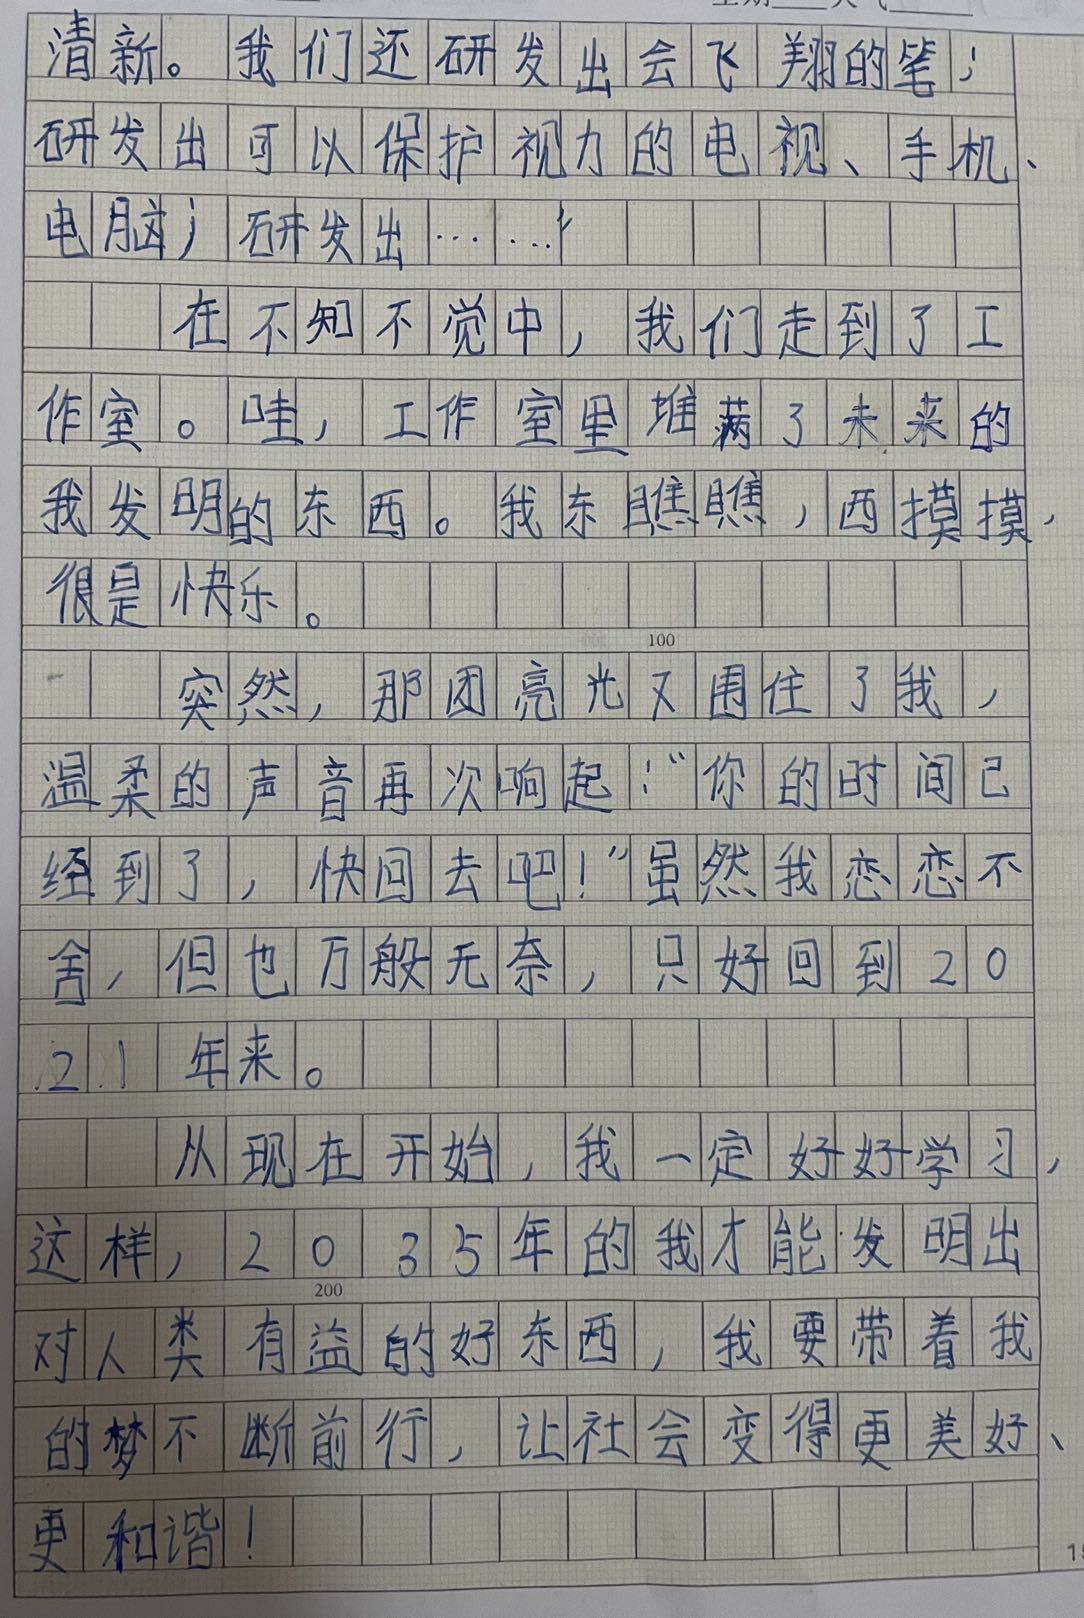 清新。我们还研发出会飞翔的笔；
研发出可以保护视力的电视、手机、
电脑；研发出……
在不知不觉中，我们走到了工
作室。哇，工作室里堆满了未来的
我发明的东西。我东瞧瞧，西摸摸，
很是快乐。
100
突然，那团亮光又围住了我，
温柔的声音再次响起：“你的时间已
经到了，快回去吧！”虽然我恋恋不
舍，但也万般无奈，只好回到20
21年来。
从现在开始，我一定好好学习，
这样，2035年的我才能发明出
200
对人类有益的好东西，我要带着我
的梦不断前行，让社会变得更美好、
更和谐！